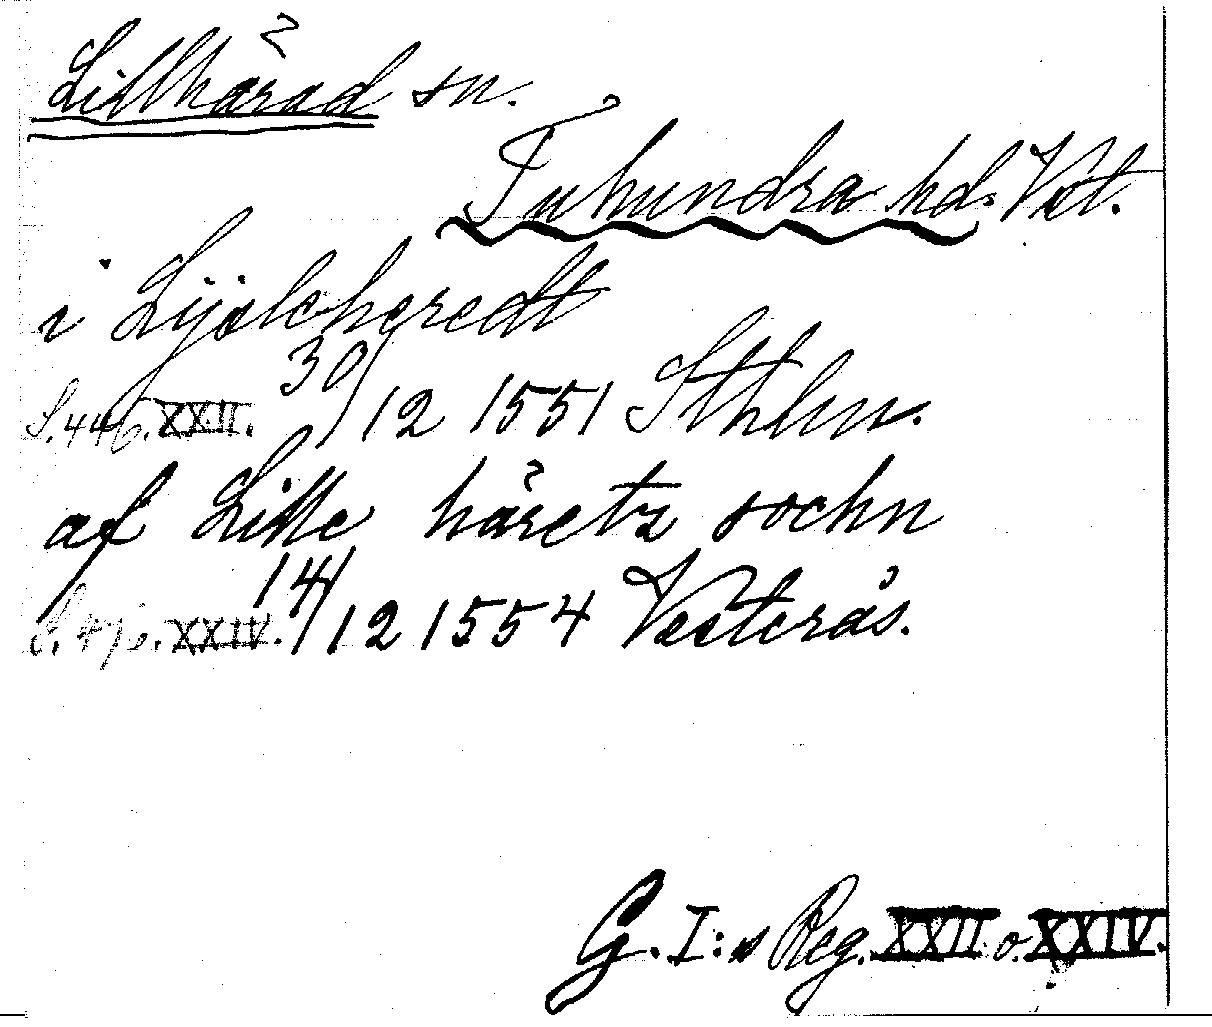 Lillhärad sn.
Tuhundra hd. Vst.
i Lijslehgredt
S. 446. XXII. 30/12 1551 Sthlm.
af Lille häretz sochn
S. 476. XXIV. 14/12 1554 Västerås.
G. I:s Reg. XXII o. XXIV.